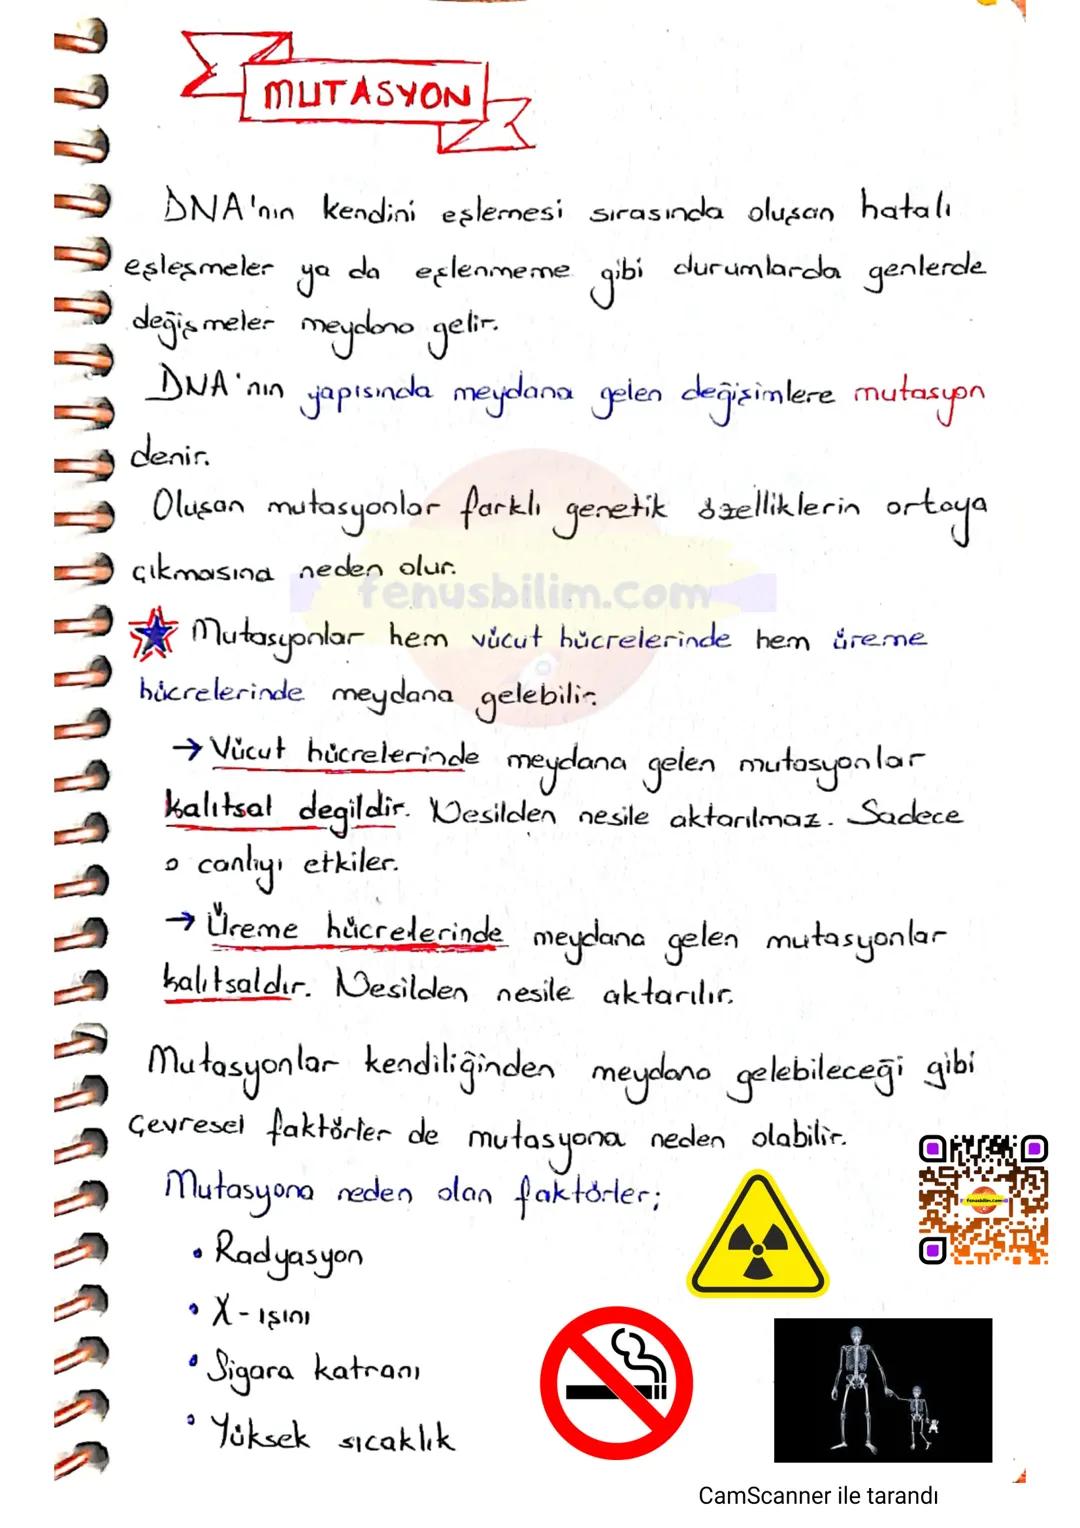 MUTASYON
DNA'nın kendini eşlemesi sırasında oluşan hatalı
eşleşmeler ya da eşlenmeme gibi durumlarda genlerde
değişmeler meydana gelir.
DNA'nın yapısında meydana gelen değişimlere mutasyon
denir.
Oluşan mutasyonlar farklı genetik özelliklerin ortaya
çıkmasına neden olur.
fenusbilim.com
Mutasyonlar hem vücut hücrelerinde hem üreme
hücrelerinde meydana gelebilir.
→ Vücut hücrelerinde meydana gelen mutasyonlar
kalıtsal degildir. Nesilden nesile aktarılmaz. Sadece
o canlıyı etkiler.
→ Üreme hücrelerinde meydana gelen mutasyonlar
kalıtsaldır. Nesilden nesile aktarılır.
Mutasyonlar kendiliğinden meydana gelebileceği gibi
çevresel faktörler de mutasyona neden olabilir.
Mutasyona neden olan faktörler;
• Radyasyon
• X-ışını
• Sigara katranı
• Yüksek sıcaklık
fenusbilim.com
CamScanner ile tarandı